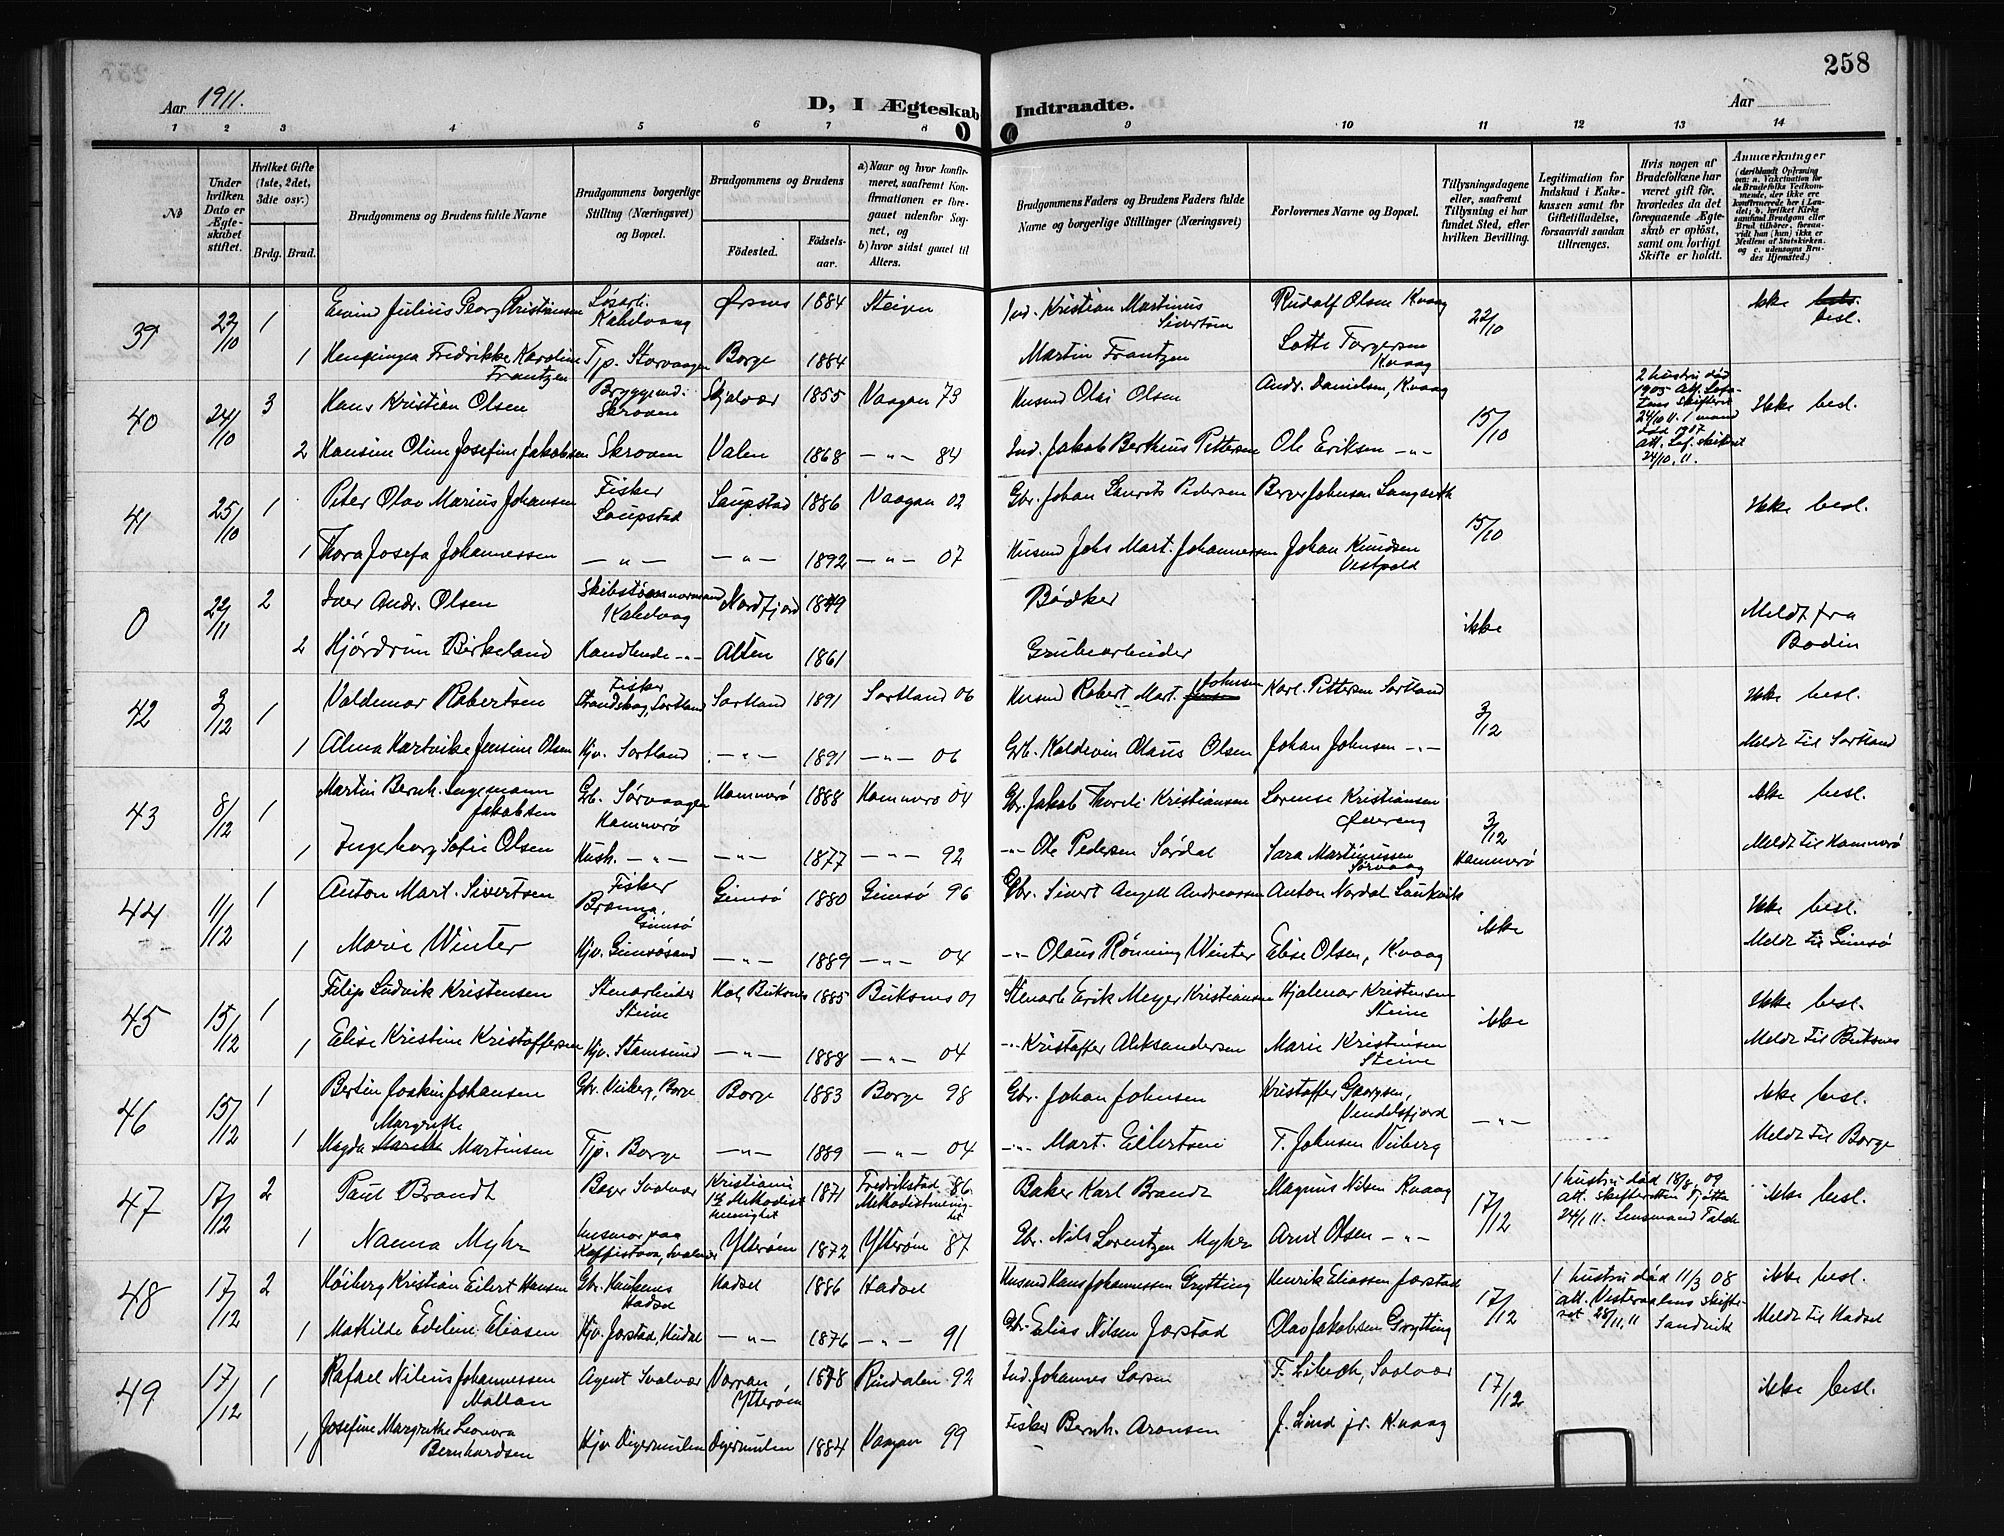 258
Aar 1911.
D, I Ægteskab Indtraadte.
Aar
1 2 3 4 5 6 7 8 9 10 11 12 13 14
No
Under hvilken Dato er Ægteskabet stiftet.
Hvilket Gifte (1ste, 2det, 3die osv.)
Brdg. Brud.
Brudgommens og Brudens fulde Navne
Brudgommens borgerlige Stilling (Næringsvei) og Bopæl.
Brudgommens og Brudens
Födested.
Födselsaar.
a) Naar og hvor konfirmeret, saafremt Konfirmationen er foregaaet udenfor Sognet, og
b) hvor sidst gaaet til Alters.
Brudgommens Faders og Brudens Faders fulde Navne og borgerlige Stillinger (Næringsvei)
Forlovernes Navne og Bopæl.
Tillysningsdagene eller, saafremt Tillysning ei har fundet Sted, efter hvilken Bevilling.
Legitimation for Indskud i Enkekassen samt for Giftetilladelse, forsaavidt saadan tiltrænges.
Hvis nogen af Brudefolkene har været gift för, hvorledes da det foregaaende Ægteskab er oplöst, samt om lovligt Skifte er holdt.
Anmærkninger
39 22/10 1 Eivind Julius Georg Kristiansen Kabelvaag Ørsnes 1884 Steigen Ind. Kristian Martinus Rudolf Olsen Kvaag 22/10 Ikke besl.
1 Fredrikke Karoline Frantzen Tjp. Storvaagen Borge 1884 Martin Frantzen Lotte Torgersen Kvaag
40 24/10 3 Hans Kristian Olsen Skroven Skjelvær 1855 Vaagan 73 Husmd Olai Olsen Andr. Danielsen, Kvaag 15/10 2 hustru död 1905 Att. Lofotens skifteret 24/10 11. 1 mand död 1907 att. Lof. skifteret 24/10.11. Ikke besl.
2 Hansine Oline Josefine Jakobsen Skroven Valen 1868 -"- 84 Ind. Jakob Bertheus Pettersen Ole Eriksen -"-
41 25/10 1 Peter Olav Marius Johansen Fisker Laupstad Laupstad 1886 Vaagan 02 Gbr. Johan Laurits Pedersen Johnsen Langseth 15/10 Ikke besl.
1 Thora Josefa Johannessen -"- -"- 1892 -"- 07 Husmd Johs Mart. Johannessen Johan Knudsen Vestpold
0 22/11 2 Iver Andr. Olsen Kabelvaag Nordfjord 1849 Bödker ikke Meldt fra Bodin
2 Hjördrun Birkeland Handlende -"- Alten 1861 Grubearbeider
42 3/12 1 Valdemar Robertsen Fisker Strandskog, Sortland Sortland 1891 Sortland 06 Husmd Robert Mart. Johnsen Karl Pettersen Sortland 3/12 Ikke besl.
1 Alma Hartvikke Jensine Olsen Hjv. Sortland -"- 1891 -"- 06 Grb. Kaldevin Olaus Olsen Johan Johnsen -"- Meldt til Sortland
43 8/12 1 Martin Bernh. Ingemann Jakobsen Grb. Sørvaagen Hamnerö Hamnerö 1888 Hamnerö 04 Gbr. Jakob Kristiansen Lorense Kristiansen 3/12 Hamnerö Ikke besl.
1 Ingeborg Sofie Olsen Hush. -"- -"- 1877 -"- 92 -"- Ole Pedersen Sørdal Sara Martinussen Sørvaag Meldt til Hamnerö
44 11/12 1 Anton Mart. Sivertsen Fisker Brenna, Gimsö Gimsö 1880 Gimsö 96 Gbr. Sivert Angell Andreassen Anton Nordal Laukvik ikke Ikke besl.
1 Marie Winter Hjv. Gimsösand -"- 1889 -"- 04 -"- Olaus Rönning Winter Elise Olsen, Kvaag Meldt til Gimsö
45 15/12 1 Filip Ludvik Kristensen Stenarbeider Steine Hol Buksnes 1885 Buksnes 01 Stenarb Erik Meyer Kristiansen Hjalmar Kristensen Steine ikke Ikke besl.
1 Elise Kristine Kristoffersen Hjv. Stamsund -"- 1888 -"- 04 -"- Kristoffer Aleksandersen Marie Kristensen Steine Meldt til Buksnes
46 15/12 1 Bertin Joakim Johansen Gbr. Veiberg, Borge Borge 1883 Borge 98 Gbr. Johan Johnsen Kristoffer Georgsen, Vendelsfjord -"- Ikke besl.
1 Magda Margrethe Martinsen Tjp. Borge -"- 1889 -"- 04 -"- Mart. Eilertsen T. Johnsen Veiberg Meldt til Borge
47 17/12 2 Paul Brandt Bager Svolvær Kristiania Methodist menighet 1871 Fredrikstad 86. Methodistmenighet Baker Karl Brandt Magnus Nilsen Kvaag 17/12 1 hustru död 18/8.09 att. skifteretten 24/1 11. Lensmand ikke besl.
1 Nanna Myhr Husmor paa Kaffistova, Svolvær Ytterøen 1872 Ytterøen 87 Gbr. Nils Lorentzen Myhr Arnt Olsen -"-
48 17/12 2 Höiberg Kristian Eilert Hansen Gbr. Haukenes Hadsel Hadsel 1886 Hadsel Husmd Hans Johannessen Grytting Henrik Eliassen Jørstad 17/12 1 hustru död 11/3 08 att. Vesteraalens skifteret 28/11.11 Sandvik ikke besl.
1 Mathilde Eveline Eliasen Hjv. Jørstad, Hadsel -"- 1876 -"- 91 Gbr. Elias Nilsen Jørstad Olav Jakobsen Grytting Meldt til Hadsel
49 17/12 1 Rafael Nilius Johannessen Moltan Agent Svolvær Ytterøen 1878 Rindalen 92 Ind. Johannes Larsen Svolvær 17/12 ikke besl.
1 Josefine Margrethe Leonora Bernhardsen Hjv Digermulen Digermulen 1884 Vaagan 99 Fisker Bernh. Aronsen J. Lind jr. Kvaag